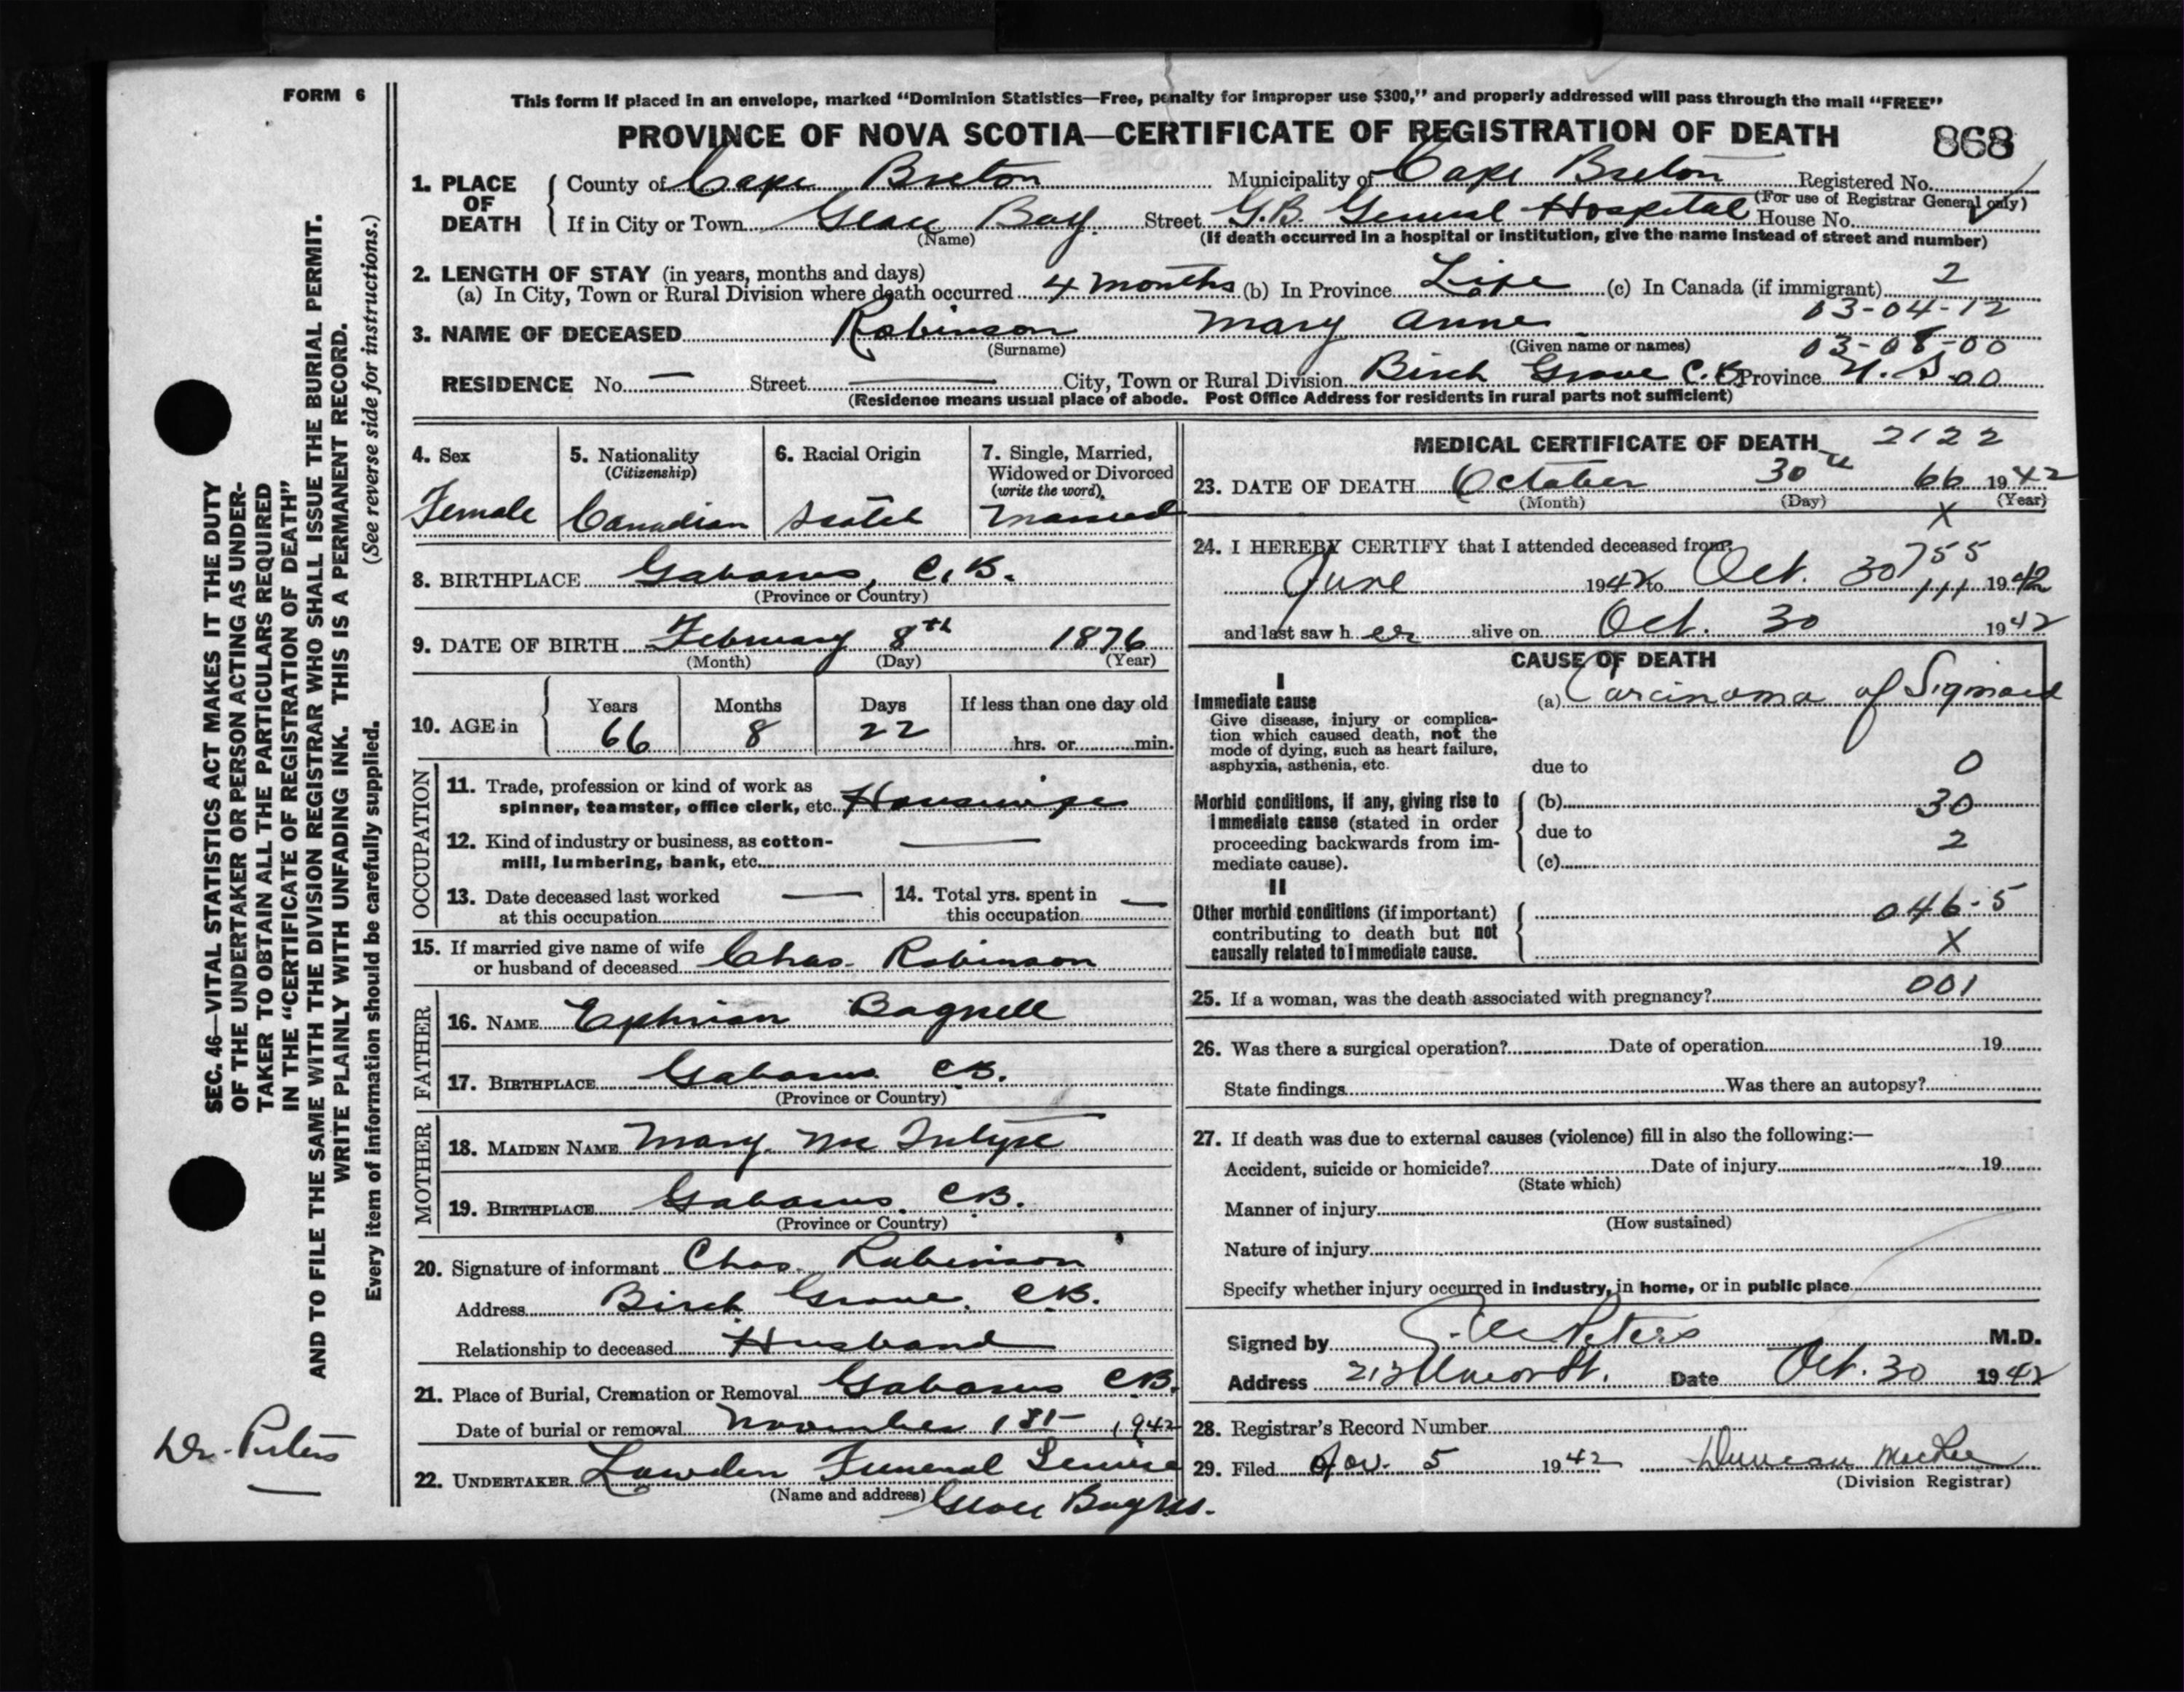 FORM 6
This form if placed in an envelope, marked "Dominion Statistics—Free, penalty for improper use $300," and properly addressed will pass through the mail "FREE"
PROVINCE OF NOVA SCOTIA—CERTIFICATE OF REGISTRATION OF DEATH 868
1. PLACE OF DEATH
County of Cape Breton Municipality of Cape Breton Registered No.
(For use of Registrar General only)
If in City or Town Glace Bay. Street G.B. General Hospital House No.
(Name) (If death occurred in a hospital or institution, give the name instead of street and number)
2. LENGTH OF STAY (in years, months and days)
(a) In City, Town or Rural Division where death occurred 4 months (b) In Province Life (c) In Canada (if immigrant) 2
03-04-12
3. NAME OF DECEASED Robinson Mary Anne
(Surname) (Given name or names) 03-08-00
RESIDENCE No. — Street — City, Town or Rural Division Birch Grove C.B. Province N.S. 00
(Residence means usual place of abode. Post Office Address for residents in rural parts not sufficient)
4. Sex
Female
5. Nationality
(Citizenship)
Canadian
6. Racial Origin
Scotch
7. Single, Married,
Widowed or Divorced
(write the word)
Married
8. BIRTHPLACE Gabarus, C.B.
(Province or Country)
9. DATE OF BIRTH February 8th 1876
(Month) (Day) (Year)
10. AGE in
Years Months Days If less than one day old
66 8 22 hrs. or min.
OCCUPATION
11. Trade, profession or kind of work as
spinner, teamster, office clerk, etc. Housewife
12. Kind of industry or business, as cotton-
mill, lumbering, bank, etc. —
13. Date deceased last worked
at this occupation —
14. Total yrs. spent in
this occupation —
15. If married give name of wife
or husband of deceased Chas. Robinson
FATHER
16. NAME Ephrian Bagnell
17. BIRTHPLACE Gabarus C.B.
(Province or Country)
MOTHER
18. MAIDEN NAME Mary McIntyre
19. BIRTHPLACE Gabarus C.B.
(Province or Country)
20. Signature of informant Chas. Robinson
Address Birch Grove. C.B.
Relationship to deceased Husband
21. Place of Burial, Cremation or Removal Gabarus C.B.
Date of burial or removal November 1st 1942
22. UNDERTAKER Lowden Funeral Service
(Name and address) Glace Bay N.S.
MEDICAL CERTIFICATE OF DEATH 2122
23. DATE OF DEATH October 30th 66 1942
(Month) (Day) X (Year)
24. I HEREBY CERTIFY that I attended deceased from:
755
June 1942 to Oct. 30 111 1942
and last saw her alive on Oct. 30 1942
CAUSE OF DEATH
I
Immediate cause (a) Carcinoma of Sigmoid
Give disease, injury or complica-
tion which caused death, not the
mode of dying, such as heart failure,
asphyxia, asthenia, etc.
due to 0
Morbid conditions, if any, giving rise to
immediate cause (stated in order
proceeding backwards from im-
mediate cause).
(b) 30
due to 2
(c)
II
Other morbid conditions (if important)
contributing to death but not
causally related to immediate cause.
046-5
X
25. If a woman, was the death associated with pregnancy? 001
26. Was there a surgical operation? Date of operation 19
State findings Was there an autopsy?
27. If death was due to external causes (violence) fill in also the following:—
Accident, suicide or homicide? Date of injury 19
(State which)
Manner of injury
(How sustained)
Nature of injury
Specify whether injury occurred in industry, in home, or in public place
Signed by Peters M.D.
Address Date Oct. 30 1942
28. Registrar's Record Number
29. Filed Nov. 5 1942 Duncan
(Division Registrar)
SEC. 46—VITAL STATISTICS ACT MAKES IT THE DUTY
OF THE UNDERTAKER OR PERSON ACTING AS UNDER-
TAKER TO OBTAIN ALL THE PARTICULARS REQUIRED
IN THE "CERTIFICATE OF REGISTRATION OF DEATH"
AND TO FILE THE SAME WITH THE DIVISION REGISTRAR WHO SHALL ISSUE THE BURIAL PERMIT.
WRITE PLAINLY WITH UNFADING INK. THIS IS A PERMANENT RECORD.
Every item of information should be carefully supplied. (See reverse side for instructions.)
Dr. Peters